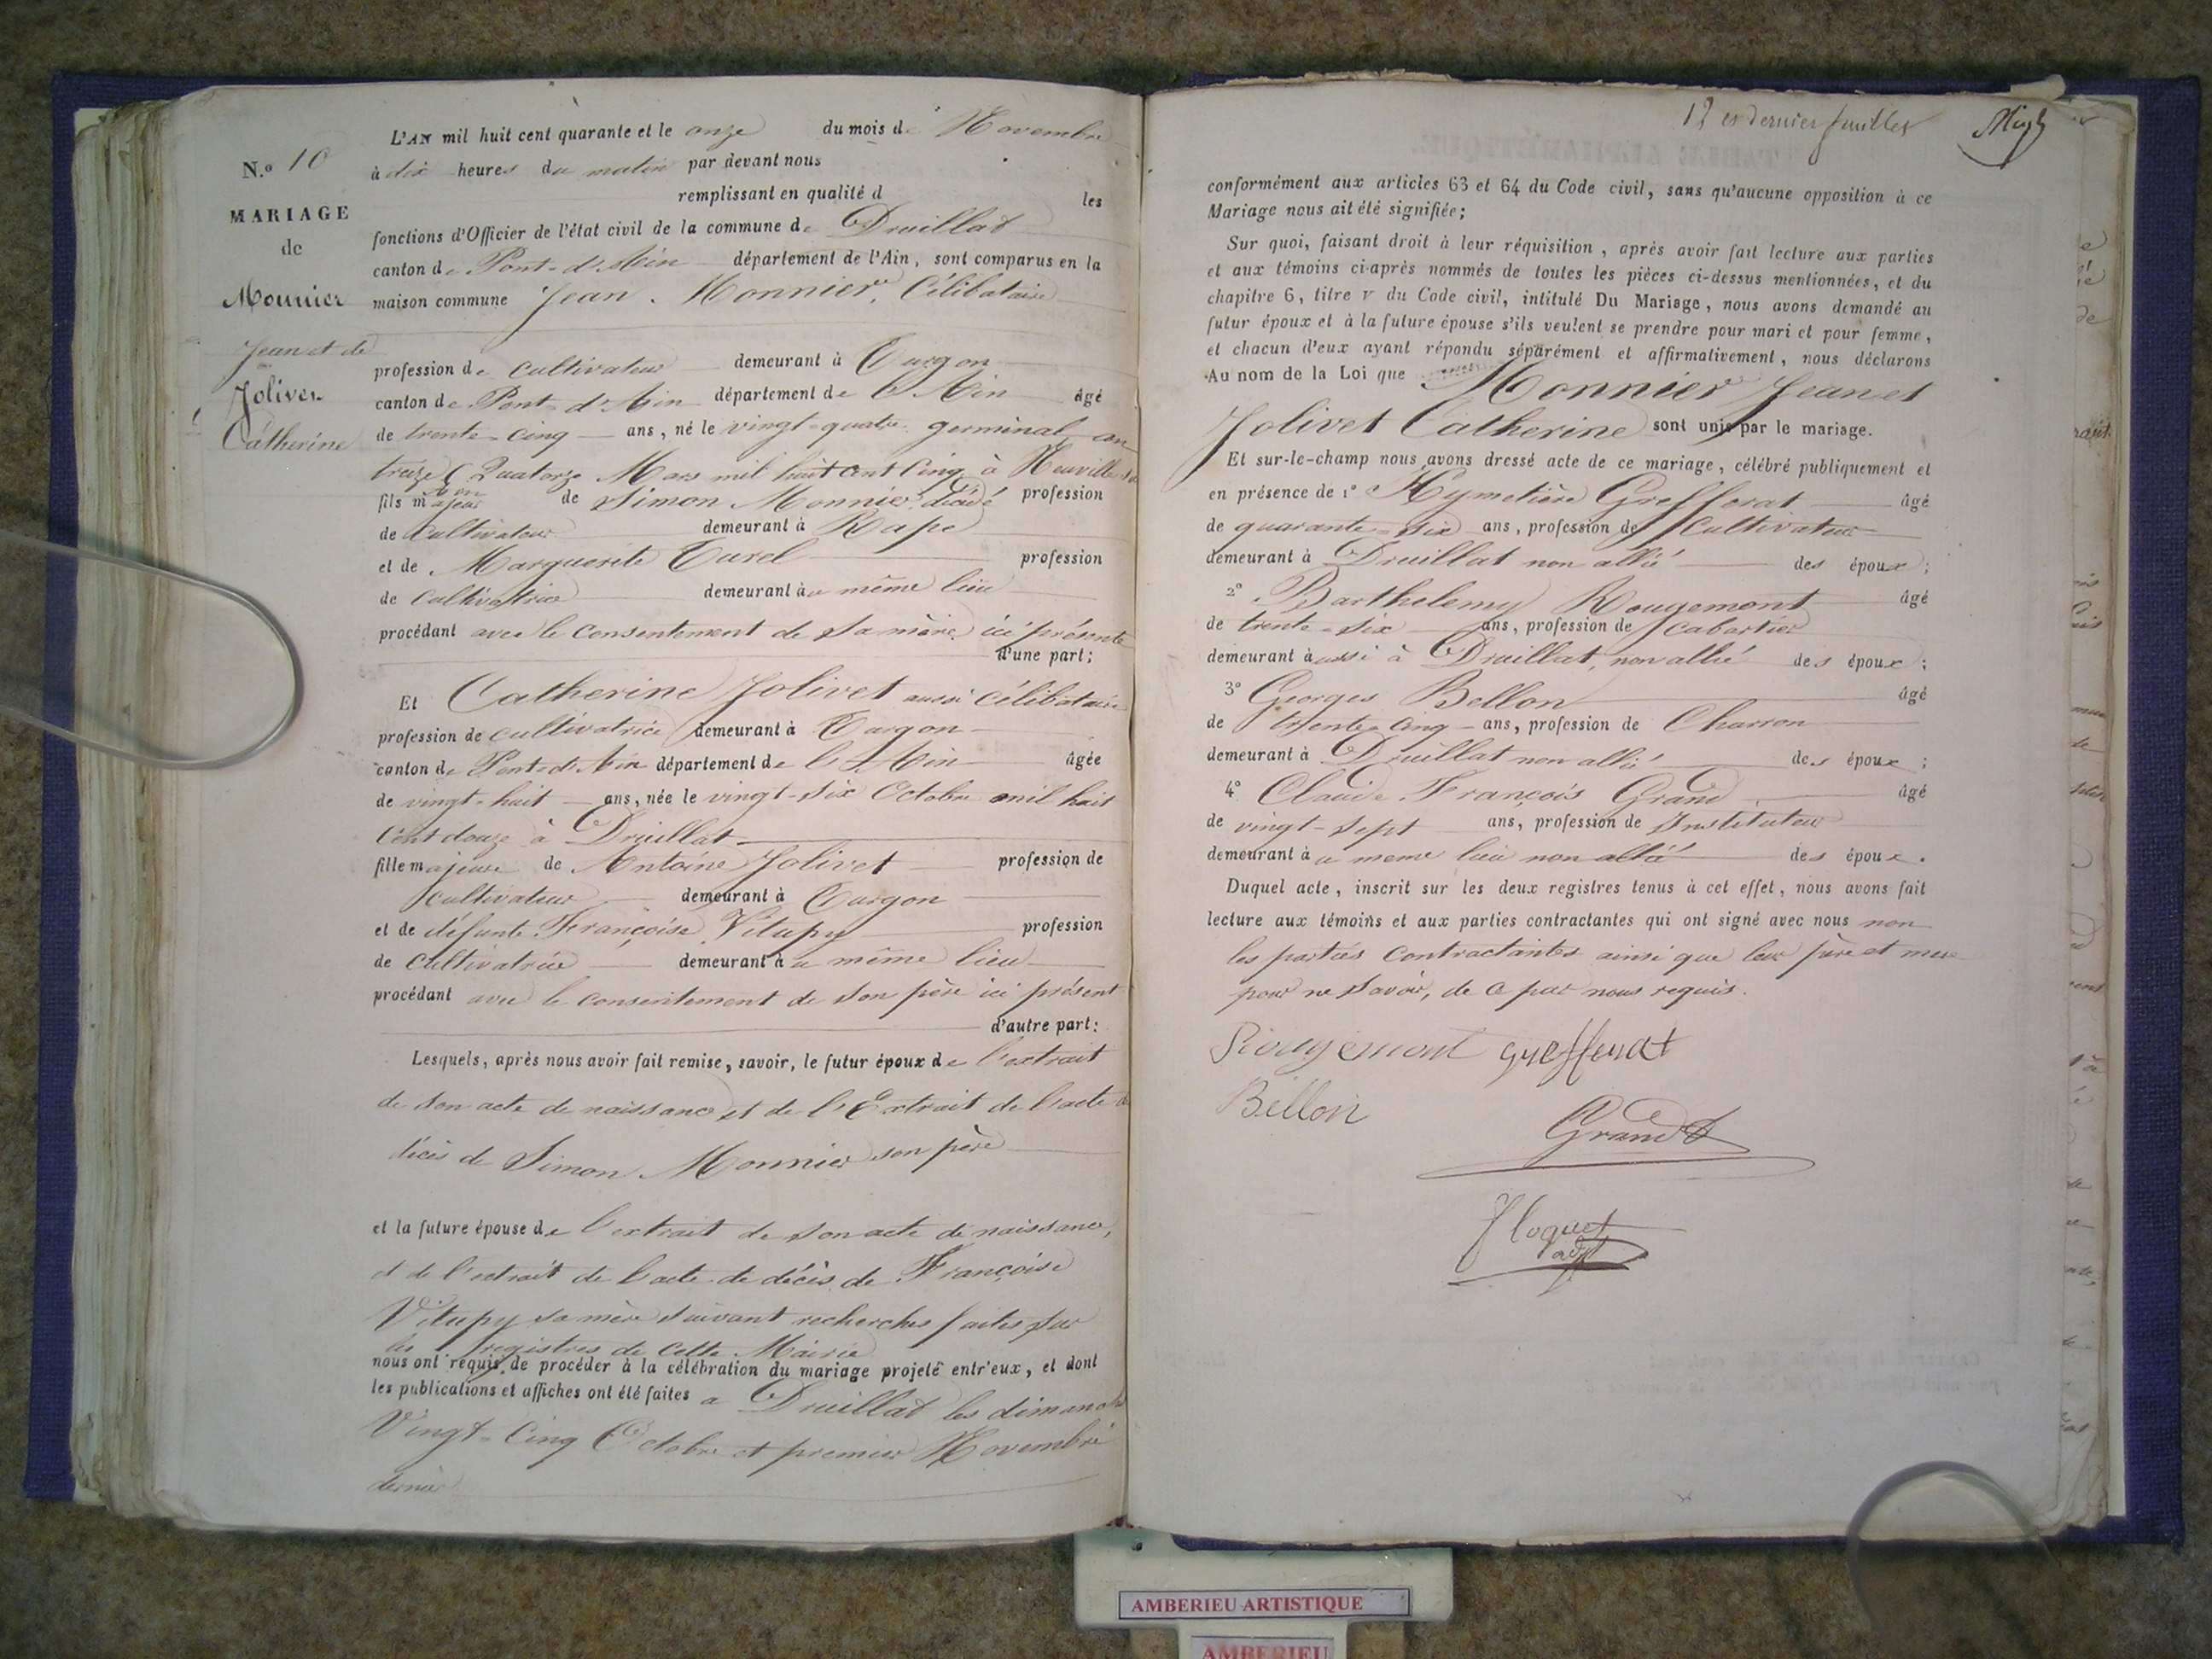 N.o 10
MARIAGE
de
Monnier
Jean et de
Jolivet
Catherine
L'AN mil huit cent quarante et le onze du mois de Novembre
à dix heures du matin par devant nous
remplissant en qualité d les
fonctions d'Officier de l'état civil de la commune de Druillat
canton de Pont-d'Ain département de l'Ain, sont comparus en la
maison commune Jean Monnier, Célibataire
profession de cultivateur demeurant à Turgon
canton de Pont-d'Ain département de l'Ain âgé
de trente-cinq ans, né le vingt-quatre germinal an
treize (Quatorze Mars mil huit cent cinq à Neuville
fils majeur de Simon Monnier décédé profession
de Cultivateur demeurant à Rape
et de Marguerite Turel profession
de Cultivatrice demeurant au même lieu
procédant avec le consentement de sa mère ici présente
d'une part;
Et Catherine Jolivet aussi célibataire
profession de cultivatrice demeurant à Turgon
canton de Pont-d'Ain département de l'Ain âgée
de vingt-huit ans, née le vingt-six Octobre mil huit
Cent douze à Druillat
fille majeure de Antoine Jolivet profession de
cultivateur demeurant à Turgon
et de défunte Françoise Vitupy profession
de Cultivatrice demeurant au même lieu
procédant avec le consentement de son père ici présent
d'autre part:
Lesquels, après nous avoir fait remise, savoir, le futur époux de l'extrait
de son acte de naissance et de l'Extrait de l'acte de
décès de Simon Monnier son père
et la future épouse de l'extrait de son acte de naissance,
et de l'extrait de l'acte de décès de Françoise
Vitupy sa mère suivant recherches faites sur
les registres de cette Mairie
nous ont requis de procéder à la célébration du mariage projeté entr'eux, et dont
les publications et affiches ont été faites à Druillat les dimanches
Vingt-Cinq Octobre et premier Novembre
dernier
12 et dernier feuillet
conformément aux articles 63 et 64 du Code civil, sans qu'aucune opposition à ce
Mariage nous ait été signifiée;
Sur quoi, faisant droit à leur réquisition, après avoir fait lecture aux parties
et aux témoins ci-après nommés de toutes les pièces ci-dessus mentionnées, et du
chapitre 6, titre V du Code civil, intitulé Du Mariage, nous avons demandé au
futur époux et à la future épouse s'ils veulent se prendre pour mari et pour femme,
et chacun d'eux ayant répondu séparément et affirmativement, nous déclarons
Au nom de la Loi que Monnier Jean et
Jolivet Catherine sont unis par le mariage.
Et sur-le-champ nous avons dressé acte de ce mariage, célébré publiquement et
en présence de 1° Hymetière Grefferat âgé
de quarante-six ans, profession de Cultivateur
demeurant à Druillat non allié des époux;
2° Barthelemy Rougemont âgé
de trente-six ans, profession de Cabartier
demeurant aussi à Druillat, non allié des époux;
3° Georges Bellon âgé
de trente-cinq ans, profession de Charron
demeurant à Druillat non allié des époux;
4° Claude François Grand âgé
de vingt-sept ans, profession de Instituteur
demeurant au même lieu non allié des époux.
Duquel acte, inscrit sur les deux registres tenus à cet effet, nous avons fait
lecture aux témoins et aux parties contractantes qui ont signé avec nous non
les parties contractantes ainsi que leur père et mère
pour ne savoir, de ce par nous requis.
Rougemont Grefferat
Bellon
Grand
AMBERIEU ARTISTIQUE
AMBERIEU